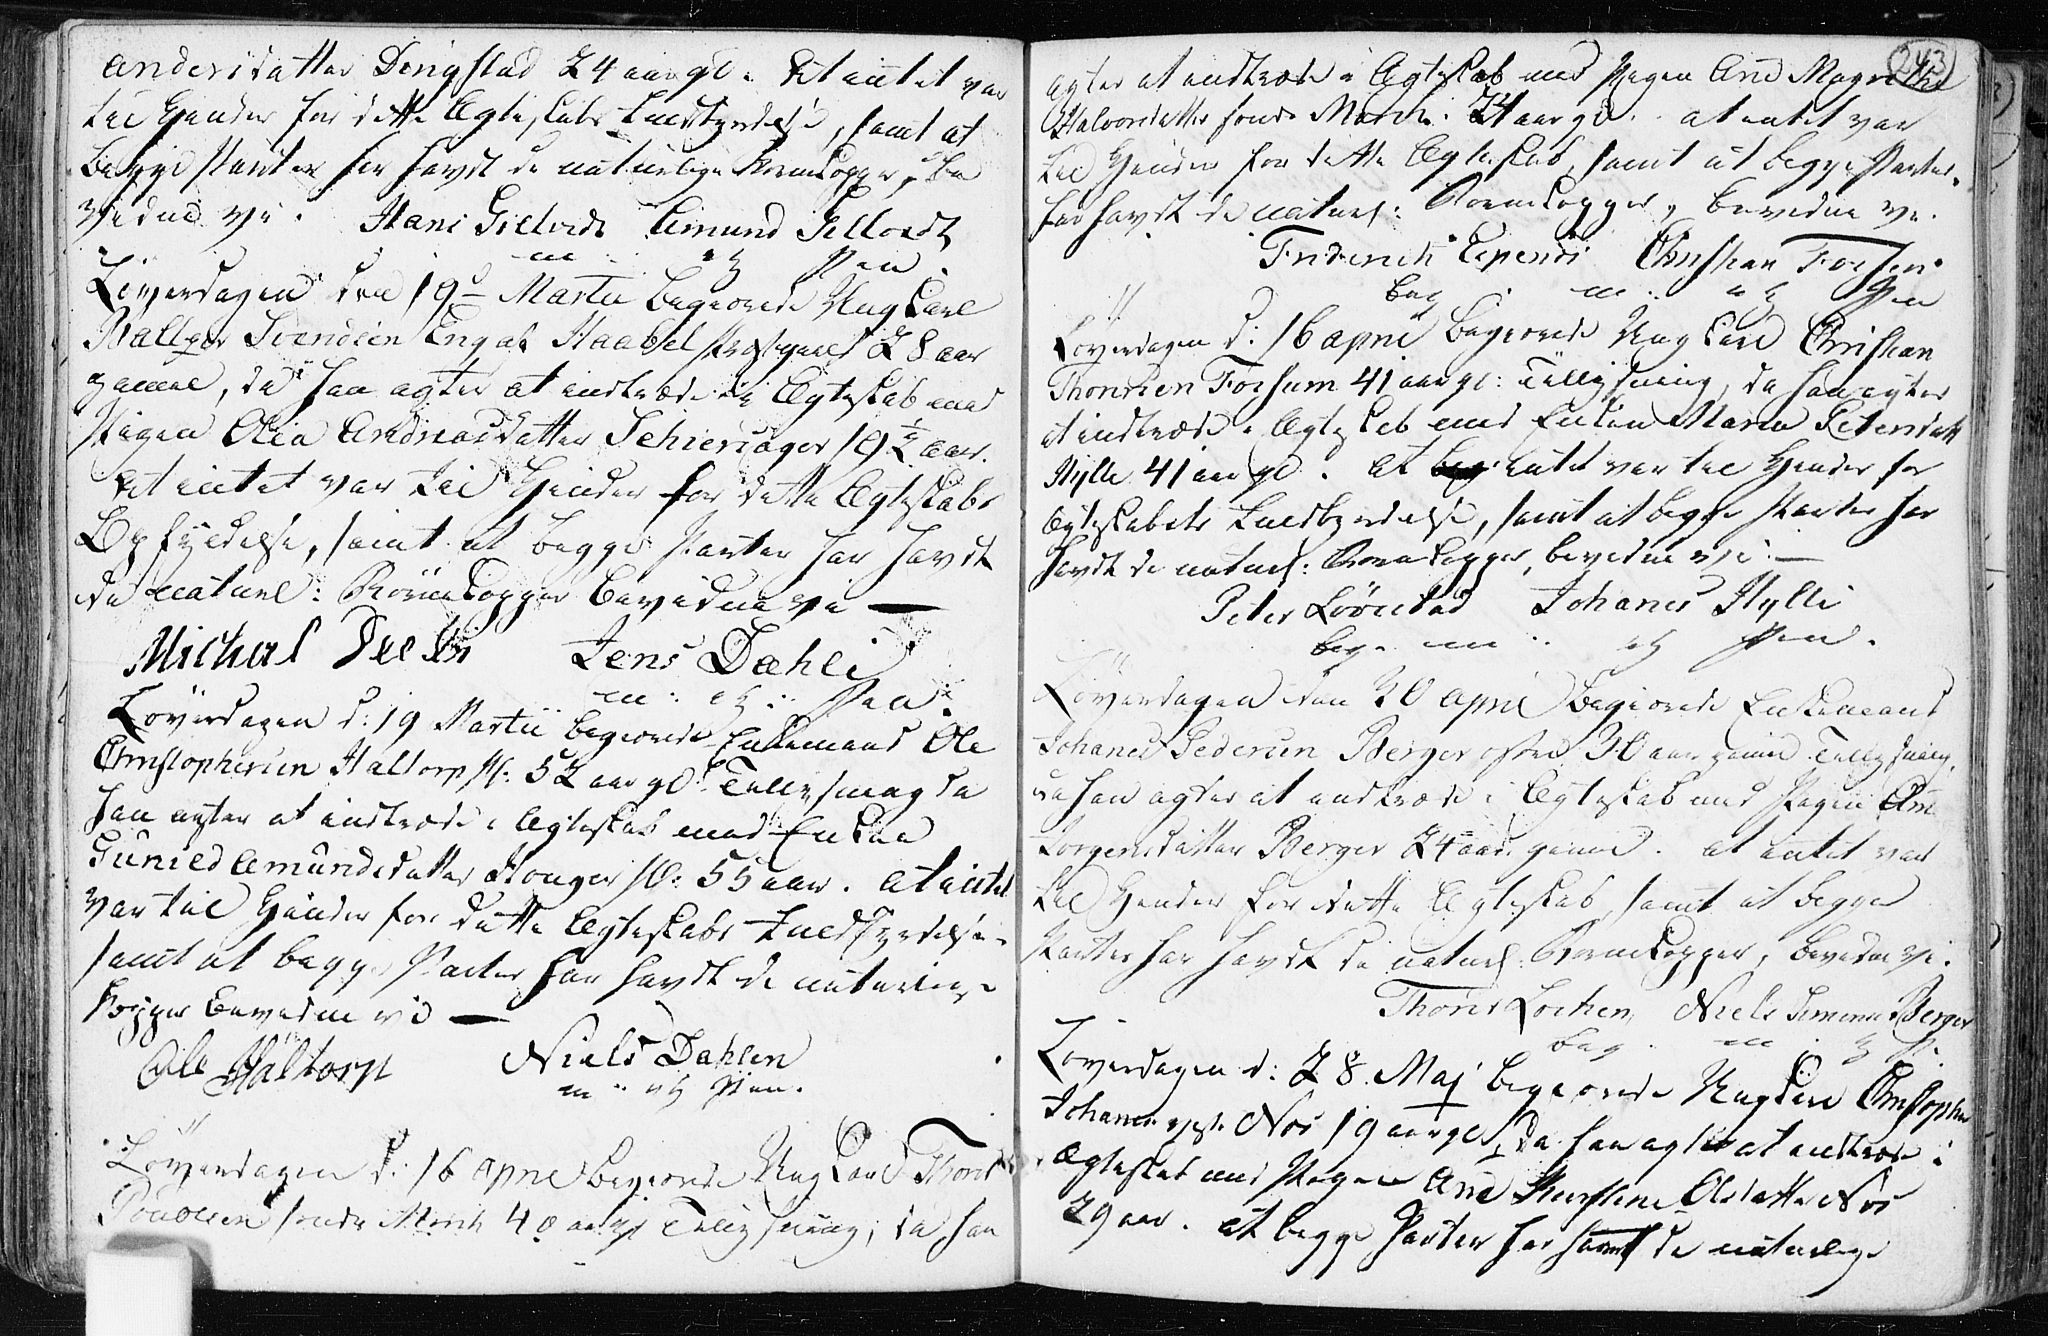 Andersdatter Dingstad 24 aar gl. At intet var
til Hinder for dette Ægteskabs Fuldbyrdelse, samt at
begge Parter har havdt de naturlige Børnekopper, be
vidne vi. Hans Amund
m: og Pen.
Løverdagen den 19d Martii begierede Ungkarl
Svendsen Engaf Haabøl Præstegield 28 aar
gammel, da han agter at indtræde i Ægteskab med
Pigen Olea Andreasdatter Schiersager 19½ aar.
At intet var til Hinder for dette Ægteskabs
Opfyldelse, samt at begge Parter har havdt
de naturl: Børnekopper bevidne vi —
Michal Jens Dæhli
m: og: Pen:
Løverdagen d: 19 Martii begierede Enkemand Ole
Christophersen Haltorp 52 aar gl: Tillysning da
han agter at indtræde i Ægteskab med Enken
Gunild Amundsdatter 55 aar. At intet
var til Hinder for dette Ægteskabs Fuldbyrdelse
samt at begge Parter har havdt de naturlige
Kopper bevidne vi —
Ole Haltorp Niels Dahlen
m: og Pen.
Løverdagen d: 16 April begierede Ungkarl Thord
Poulsen søndr Mørch 40 aar gl Tillysning, da han
243
agter at indtræde i Ægteskab med Pigen Ane Magrethe
Halvorsdatter søndr Mørch. 24 aar gl. at intet var
til Hinder for dette Ægteskab, samt at begge Parter
har havdt de naturl: Børnekopper, bevidne vi.
Friderich Christian
beg m: og Pen
Løverdagen d: 16 April begierede Ungkarl Christian
Thorsen Forsum 41 aar gl: Tillysning, da han agter
at indtræde i Ægteskab med Enken Maria Petersdatt
Hylle 41 aar gl. At intet var til Hinder for
Ægteskabets Fuldbyrdelse, samt at begge Parter har
havdt de naturl: Børnekopper, bevidne vi: —
Peter Løørstad Johanes Hylli
beg. m: og Pen.
Løverdagen den 30 April begierede Enkemand
Johanes Pedersen Berger 30 aar gaml Tillysning,
da han agter at indtræde i Ægteskab med Pigen Ane
Jørgensdatter Berger 24 aar gaml. at intet var
til Hinder for dette Ægteskab, samt at begge
Parter har havdt de naturl: Børnekopper, bevidne vi.
Thorer Lochen, Niels Berger
beg. m: og P.
Løverdagen d: 28 Maj begierede Ungkarl Christopher
Johannes Nós 19 aar gl, da han agter at indtræde i
Ægteskab med Pigen Ane Kirstine Olsdatter Nós
29 aar. at begge Parter har havt de naturlige